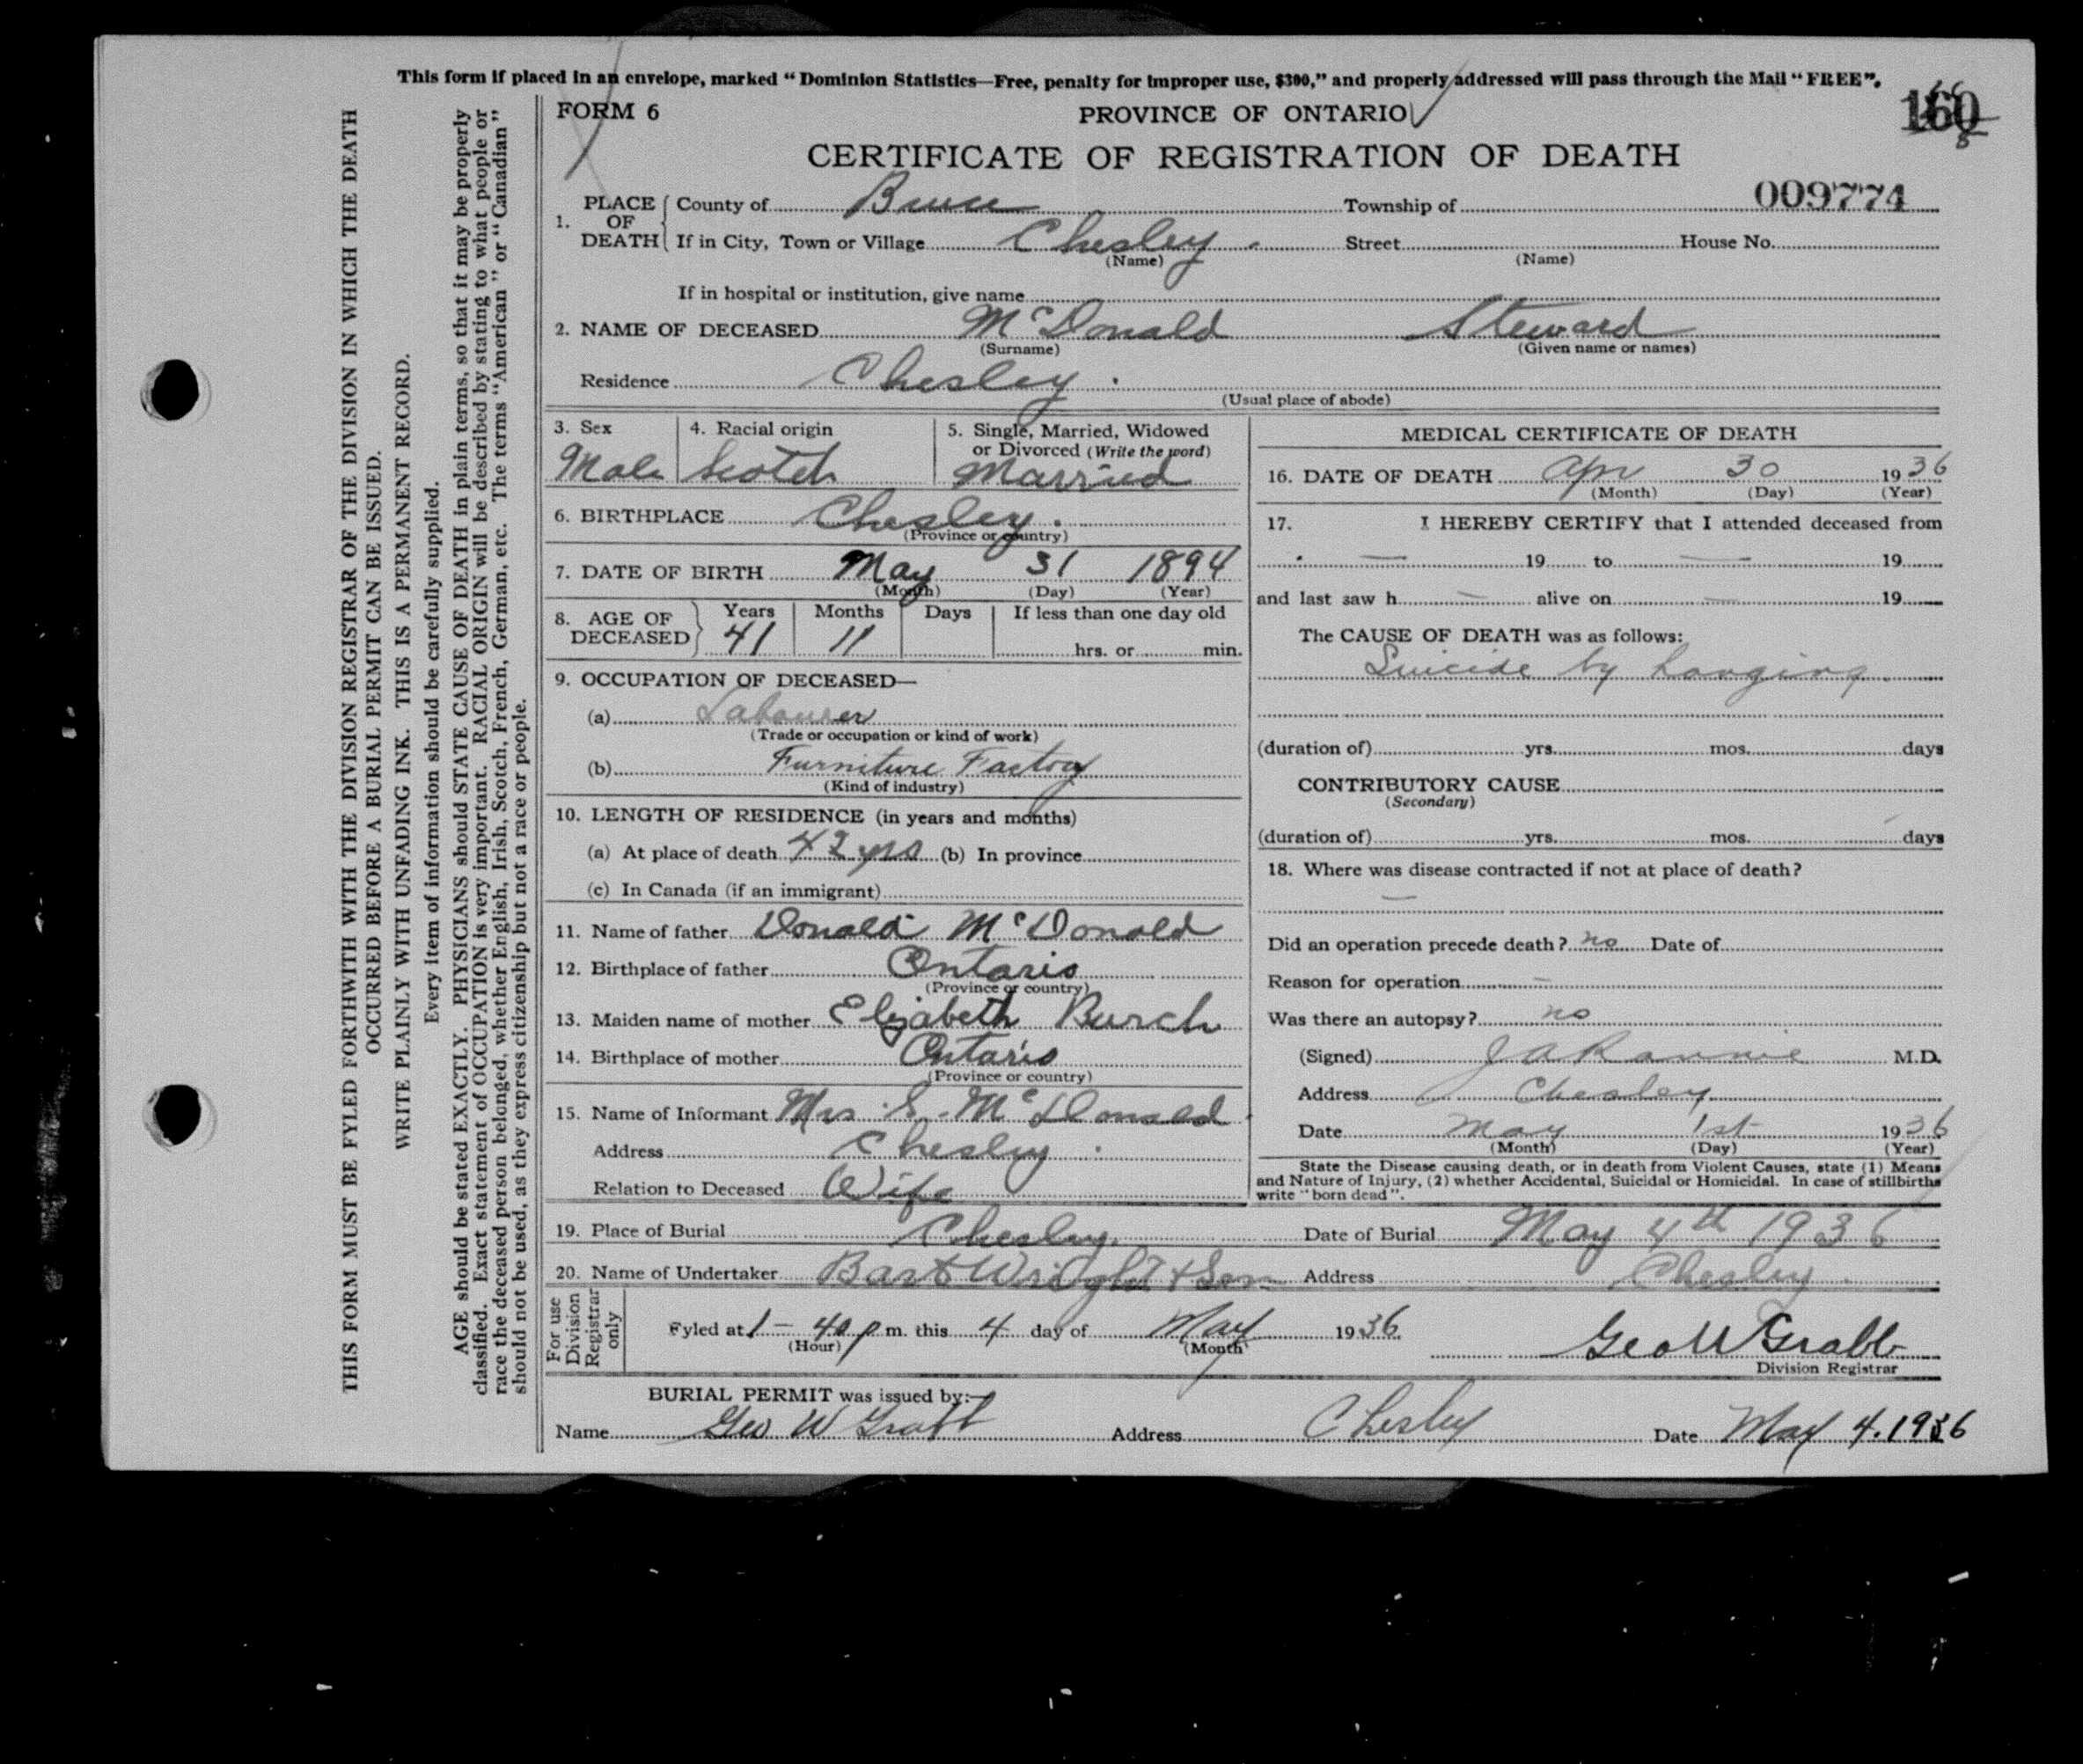 This form if placed in an envelope, marked “Dominion Statistics—Free, penalty for improper use, $300,” and properly addressed will pass through the Mail “FREE”.
FORM 6
PROVINCE OF ONTARIO
160
CERTIFICATE OF REGISTRATION OF DEATH
009774
1. PLACE OF DEATH County of Bruce Township of
If in City, Town or Village Chesley. Street House No.
(Name) (Name)
If in hospital or institution, give name
2. NAME OF DECEASED McDonald Steward
(Surname) (Given name or names)
Residence Chesley.
(Usual place of abode)
3. Sex 4. Racial origin 5. Single, Married, Widowed
or Divorced (Write the word)
Male Scotch Married
6. BIRTHPLACE Chesley.
(Province or country)
7. DATE OF BIRTH May 31 1894
(Month) (Day) (Year)
8. AGE OF DECEASED Years Months Days If less than one day old
41 11 hrs. or min.
9. OCCUPATION OF DECEASED—
(a) Labourer
(Trade or occupation or kind of work)
(b) Furniture Factory
(Kind of industry)
10. LENGTH OF RESIDENCE (in years and months)
(a) At place of death 42 yrs (b) In province
(c) In Canada (if an immigrant)
11. Name of father Donald McDonald
12. Birthplace of father Ontario
(Province or country)
13. Maiden name of mother Elizabeth Burch
14. Birthplace of mother Ontario
(Province or country)
15. Name of Informant Mrs. S. McDonald
Address Chesley.
Relation to Deceased Wife
MEDICAL CERTIFICATE OF DEATH
16. DATE OF DEATH Apr 30 1936
(Month) (Day) (Year)
17. I HEREBY CERTIFY that I attended deceased from
— 19 to — 19
and last saw h — alive on — 19
The CAUSE OF DEATH was as follows:
Suicide by hanging.
(duration of) yrs. mos. days
CONTRIBUTORY CAUSE
(Secondary)
(duration of) yrs. mos. days
18. Where was disease contracted if not at place of death?
—
Did an operation precede death? no Date of
Reason for operation —
Was there an autopsy? no
(Signed) J A Rannie M.D.
Address Chesley
Date May 1st 1936
(Month) (Day) (Year)
State the Disease causing death, or in death from Violent Causes, state (1) Means
and Nature of Injury, (2) whether Accidental, Suicidal or Homicidal. In case of stillbirths
write “born dead”.
19. Place of Burial Chesley. Date of Burial May 4th 1936
20. Name of Undertaker Wright & Son Address Chesley.
For use Division Registrar only
Fyled at 1-40 p m. this 4 day of May 1936. Geo W Grabb
(Hour) (Month) Division Registrar
BURIAL PERMIT was issued by:—
Name Geo W Grabb Address Chesley Date May 4. 1936
THIS FORM MUST BE FYLED FORTHWITH WITH THE DIVISION REGISTRAR OF THE DIVISION IN WHICH THE DEATH
OCCURRED BEFORE A BURIAL PERMIT CAN BE ISSUED.
WRITE PLAINLY WITH UNFADING INK. THIS IS A PERMANENT RECORD.
Every item of information should be carefully supplied.
AGE should be stated EXACTLY. PHYSICIANS should STATE CAUSE OF DEATH in plain terms, so that it may be properly
classified. Exact statement of OCCUPATION is very important. RACIAL ORIGIN will be described by stating to what people or
race the deceased person belonged, whether English, Irish, Scotch, French, German, etc. The terms “American” or “Canadian”
should not be used, as they express citizenship but not a race or people.